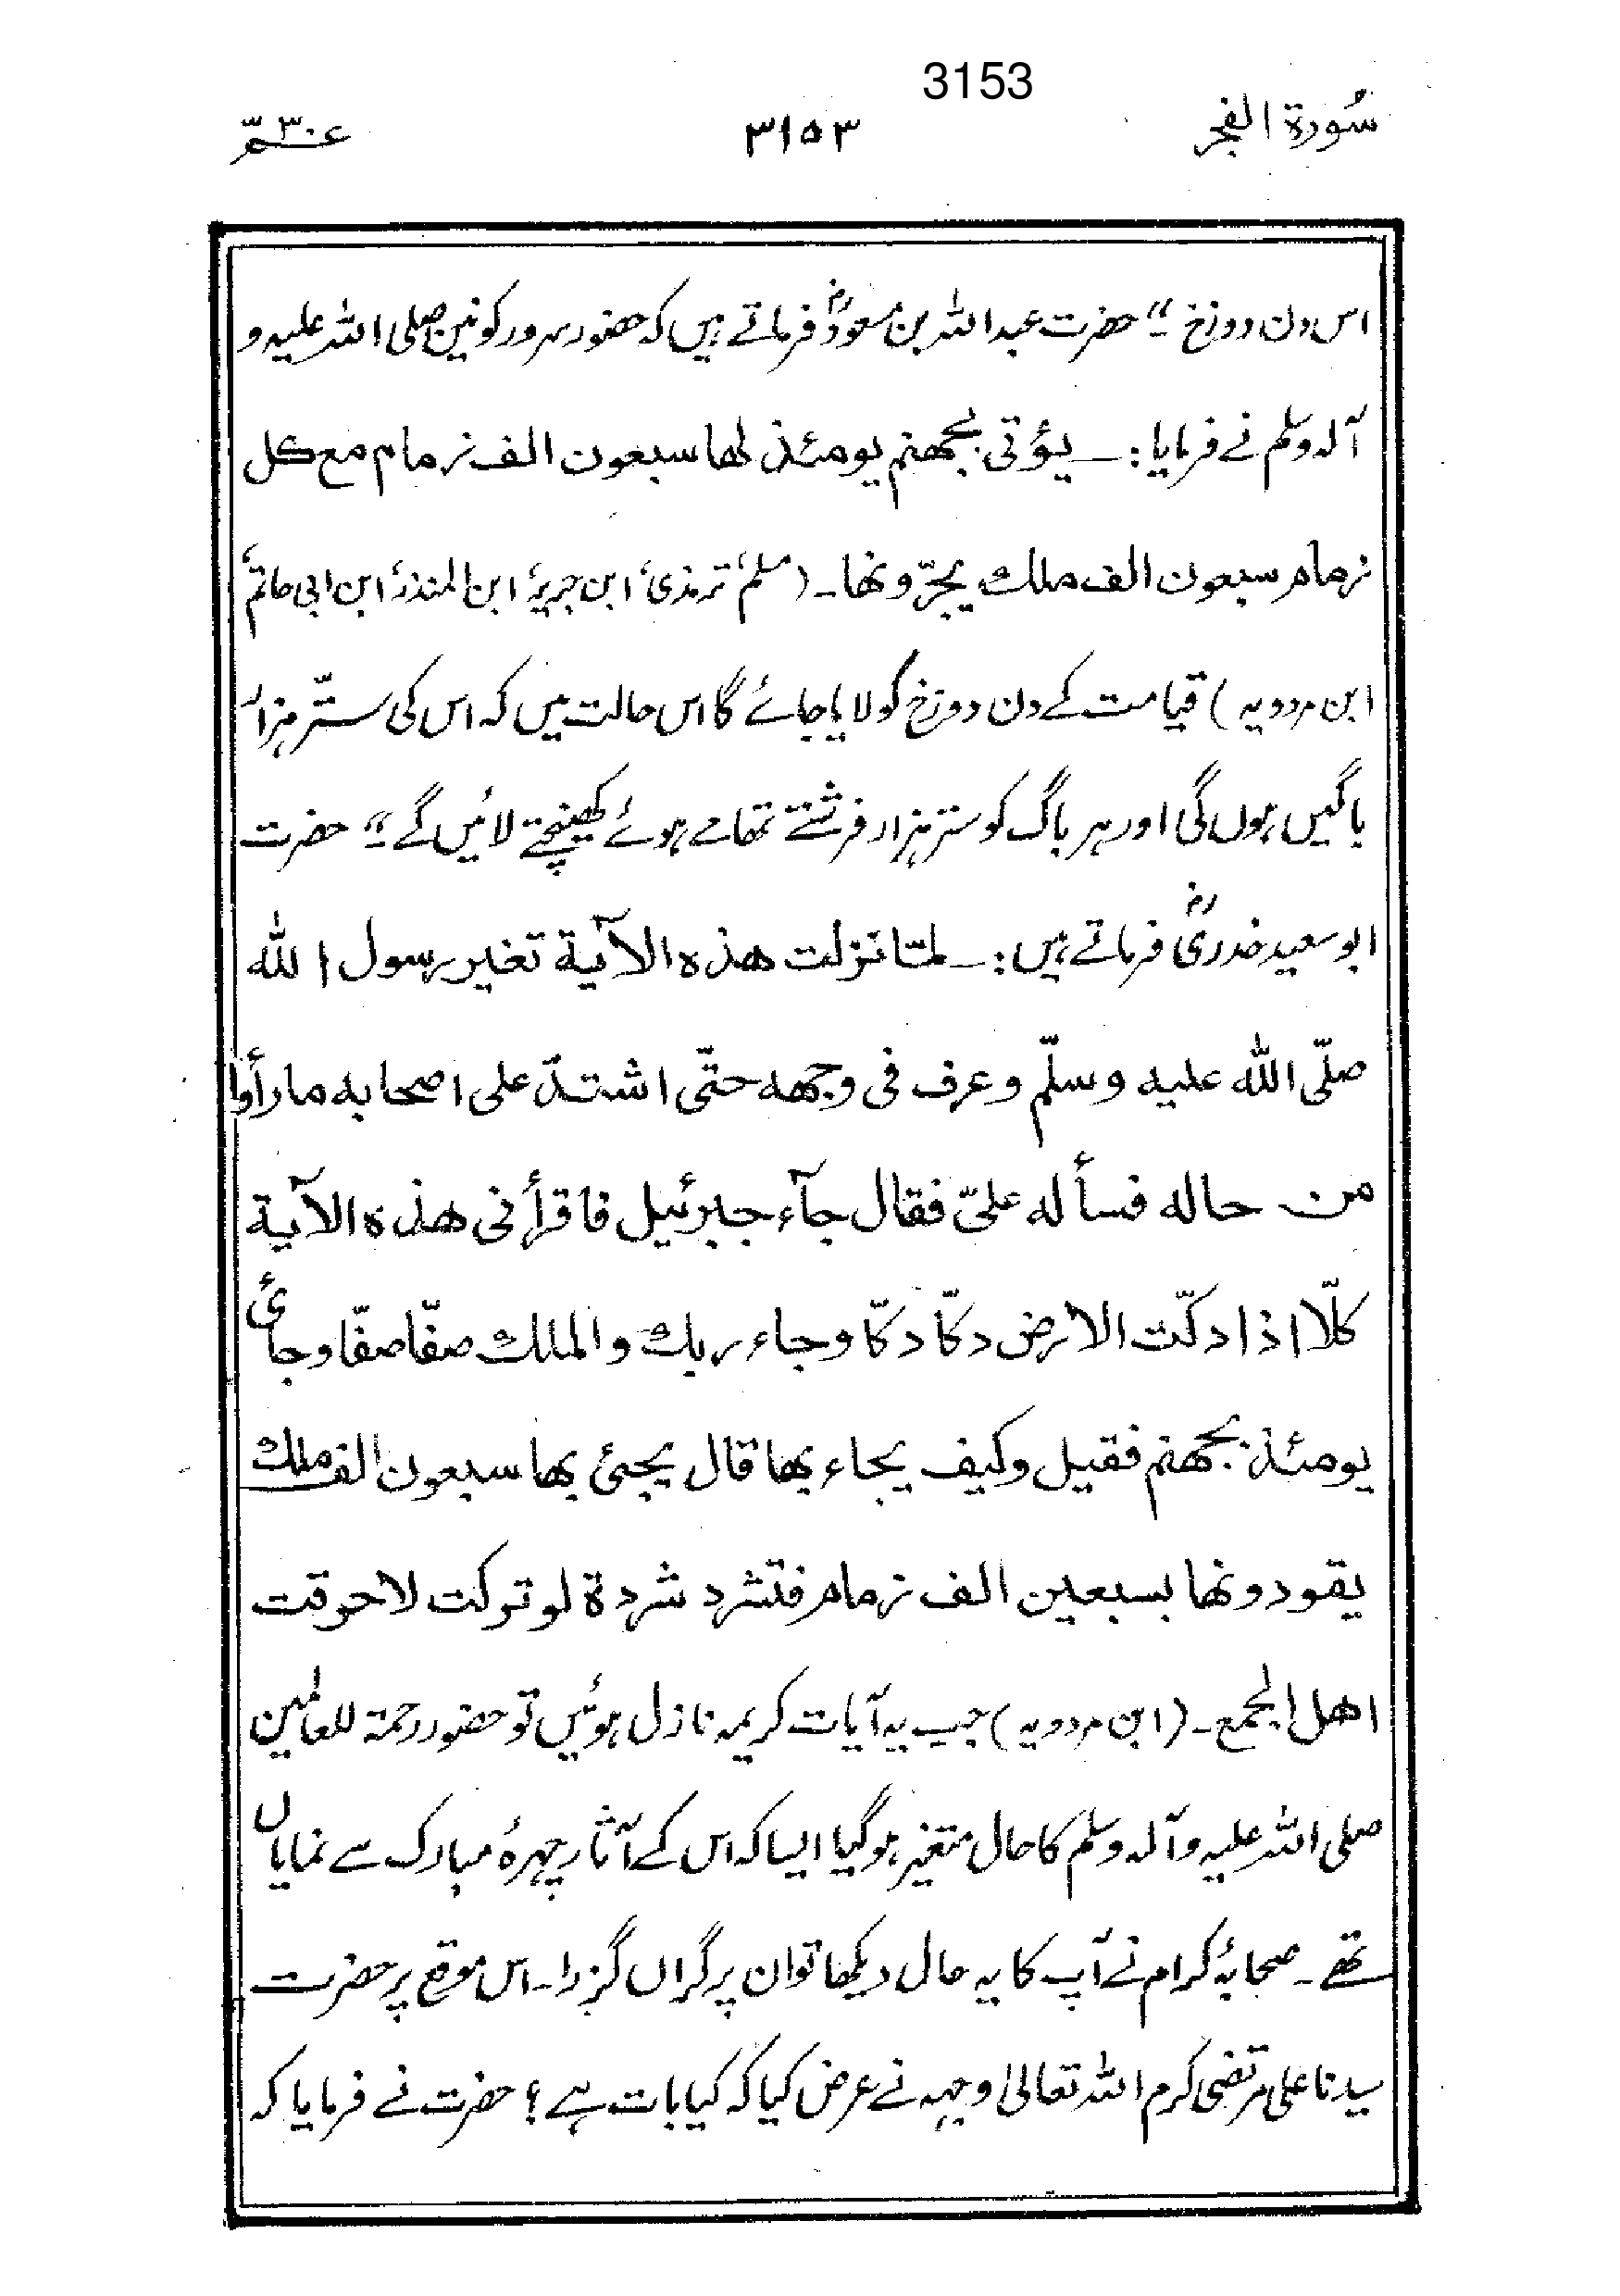 3153
سُورة الفجر ۳۱۵۳ عمّ ۳۰
اس دن دوزخ ۔" حضرت عبد اللہ بن مسعودؓ فرماتے ہیں کہ حضور سرور کونین صلی اللہ علیہ و
آلہ وسلم نے فرمایا :ـ یؤتی بجھنم یومئذ لھا سبعون الف زمام مع کل
زمام سبعون الف ملک یجرّونھا۔ (مسلم، ترمذی، ابن جریر، ابن المنذر، ابن ابی حاتم،
ابن مردویہ) قیامت کے دن دوزخ کو لایا جائے گا اس حالت میں کہ اس کی ستّر ہزار
باگیں ہوں گی اور ہر باگ کو ستر ہزار فرشتے تھامے ہوئے کھینچتے لائیں گے ۔" حضرت
ابو سعید خدریؓ فرماتے ہیں :ـ لمّا نزلت ھذہ الآیة تغیر رسول اللہ
صلّی اللہ علیہ وسلّم وعرف فی وجھہ حتّی اشتدّ علی اصحابہ ما رأوا
من حالہ فسألہ علیّ فقال جآء جبرئیل فاقرأنی ھذہ الآیة
کلّا اذا دکّت الارض دکّا دکّا وجاء ربک والملک صفّا صفّا وجائ
یومئذ بجھنم فقیل وکیف یجاء بھا قال یجئ بھا سبعون الف ملک
یقودونھا بسبعین الف زمام فتشرد شردة لو ترکت لاحرقت
اھل الجمع۔ (ابن مردویہ) جب یہ آیات کریمہ نازل ہوئیں تو حضور رحمۃ للعالمین
صلی اللہ علیہ وآلہ وسلم کا حال متغیر ہوگیا ایسا کہ اس کے آثار چہرۂ مبارک سے نمایاں
تھے۔ صحابۂ کرام نے آپ کا یہ حال دیکھا تو ان پر گراں گزرا۔ اس موقع پر حضرت
سیدنا علی مرتضیٰ کرم اللہ تعالیٰ وجہہ نے عرض کیا کہ کیا بات ہے؟ حضرت نے فرمایا کہ